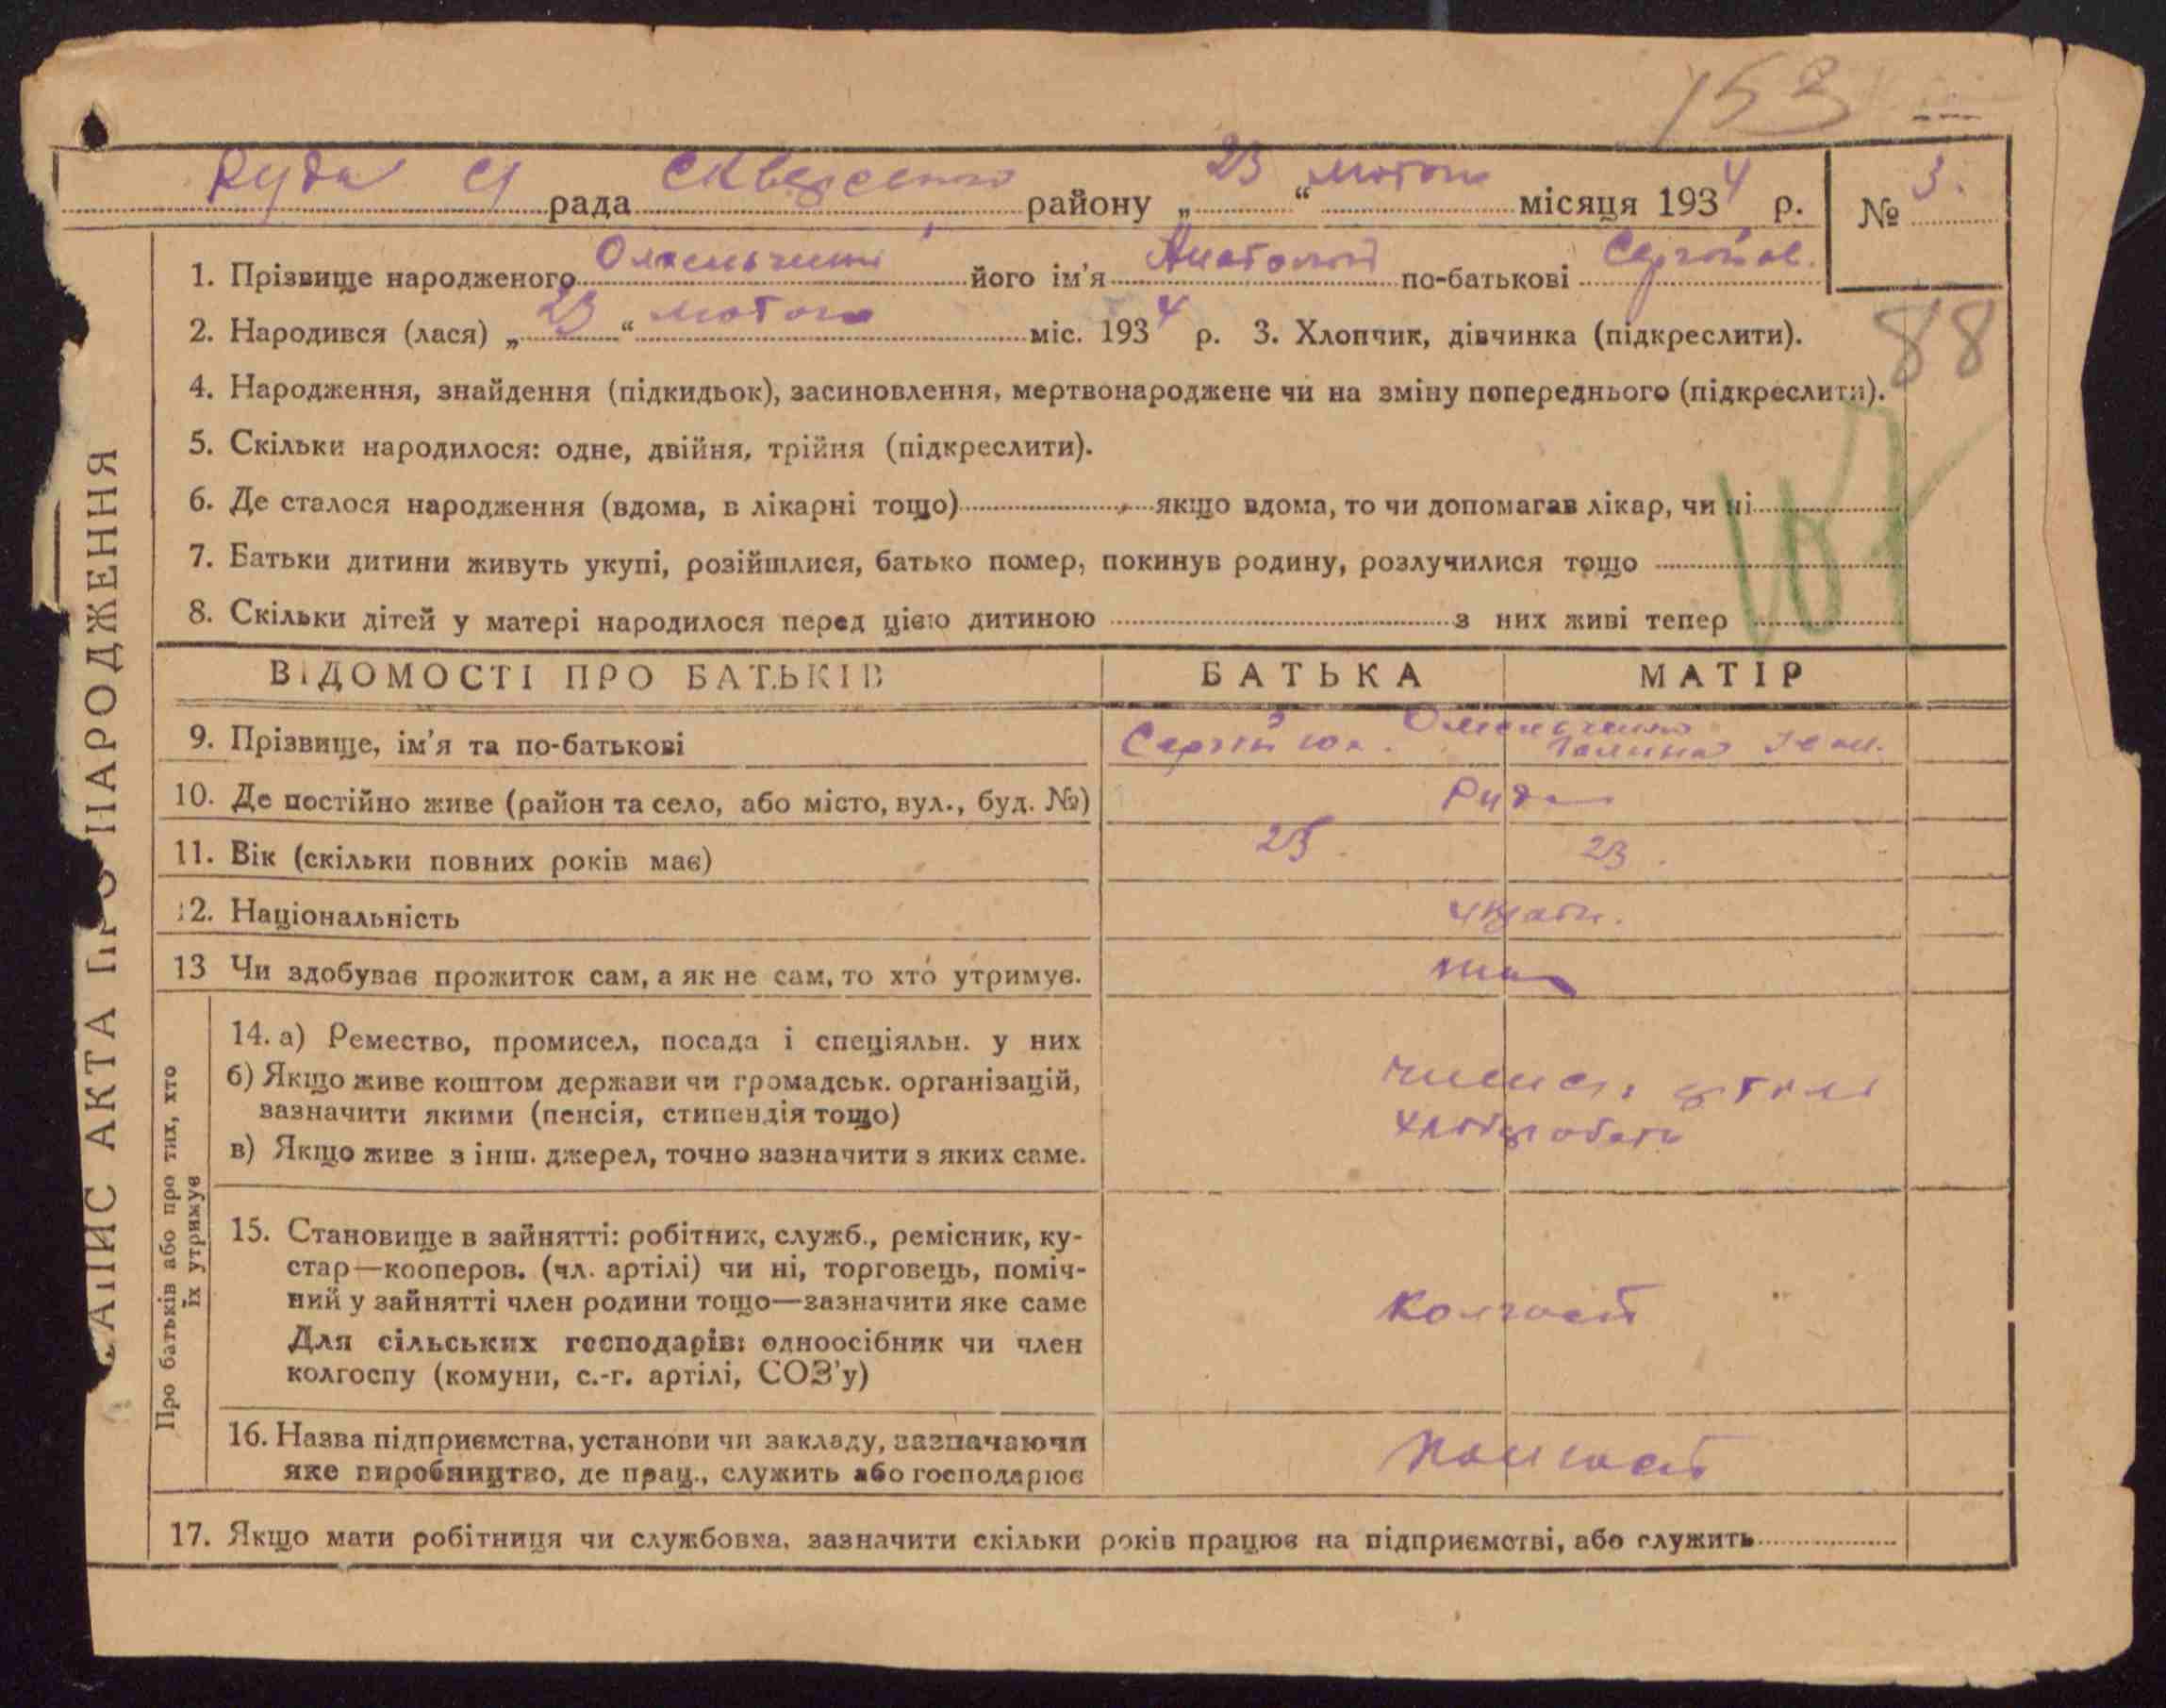 153
Руда с/ рада Сквирського району „ 23 “ лютого місяця 1934 р. № 3.
1. Прізвище народженого Омельченко його ім'я Анатолій по-батькові Сергійов.
2. Народився (лася) „ 23 “ лютого міс. 1934 р. 3. Хлопчик, дівчинка (підкреслити).
88
4. Народження, знайдення (підкидьок), засиновлення, мертвонароджене чи на зміну попереднього (підкреслити).
5. Скільки народилося: одне, двійня, трійня (підкреслити).
6. Де сталося народження (вдома, в лікарні тощо) якщо вдома, то чи допомагав лікар, чи ні
107
7. Батьки дитини живуть укупі, розійшлися, батько помер, покинув родину, розлучилися тощо
8. Скільки дітей у матері народилося перед цією дитиною з них живі тепер
ВІДОМОСТІ ПРО БАТЬКІВ БАТЬКА МАТІР
9. Прізвище, ім'я та по-батькові Омельченко
Сергій Галина
10. Де постійно живе (район та село, або місто, вул., буд. №) Руда
11. Вік (скільки повних років має) 25. 23.
12. Національність
13 Чи здобуває прожиток сам, а як не сам, то хто утримує.
14. а) Ремество, промисел, посада і спеціяльн. у них
б) Якщо живе коштом держави чи громадськ. організацій,
зазначити якими (пенсія, стипендія тощо)
хлібороби
в) Якщо живе з інш. джерел, точно зазначити з яких саме.
15. Становище в зайнятті: робітник, служб., ремісник, ку-
стар—кооперов. (чл. артілі) чи ні, торговець, поміч-
ний у зайнятті член родини тощо—зазначити яке саме
Для сільських господарів: одноосібник чи член
колгоспу (комуни, с.-г. артілі, СОЗ'у)
колгосп
16. Назва підприємства, установи чи закладу, зазначаючи
яке виробництво, де прац., служить або господарює
17. Якщо мати робітниця чи службовка, зазначити скільки років працює на підприємстві, або служить
ЗАПИС АКТА ПРО НАРОДЖЕННЯ
Про батьків або про тих, хто
їх утримує